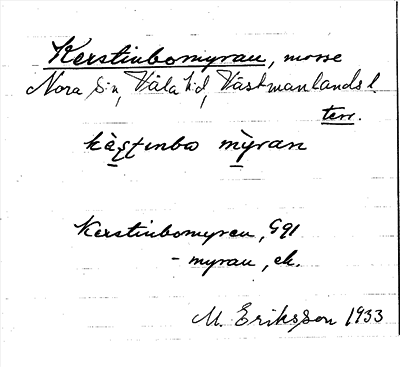 Kerstinbomyran, mosse
Nora s:n, Våla hd, Västmanlands l.
terr.
kàʂʈɩnbω mỳran
Kerstinbomyren, G91
- myran, ek.
M. Eriksson 1933